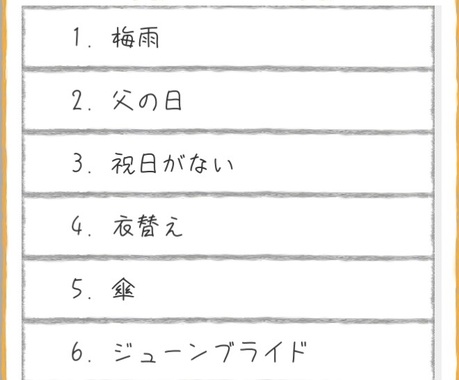 1. 梅雨
2. 父の日
3. 祝日がない
4. 衣替え
5. 傘
6. ジューンブライド